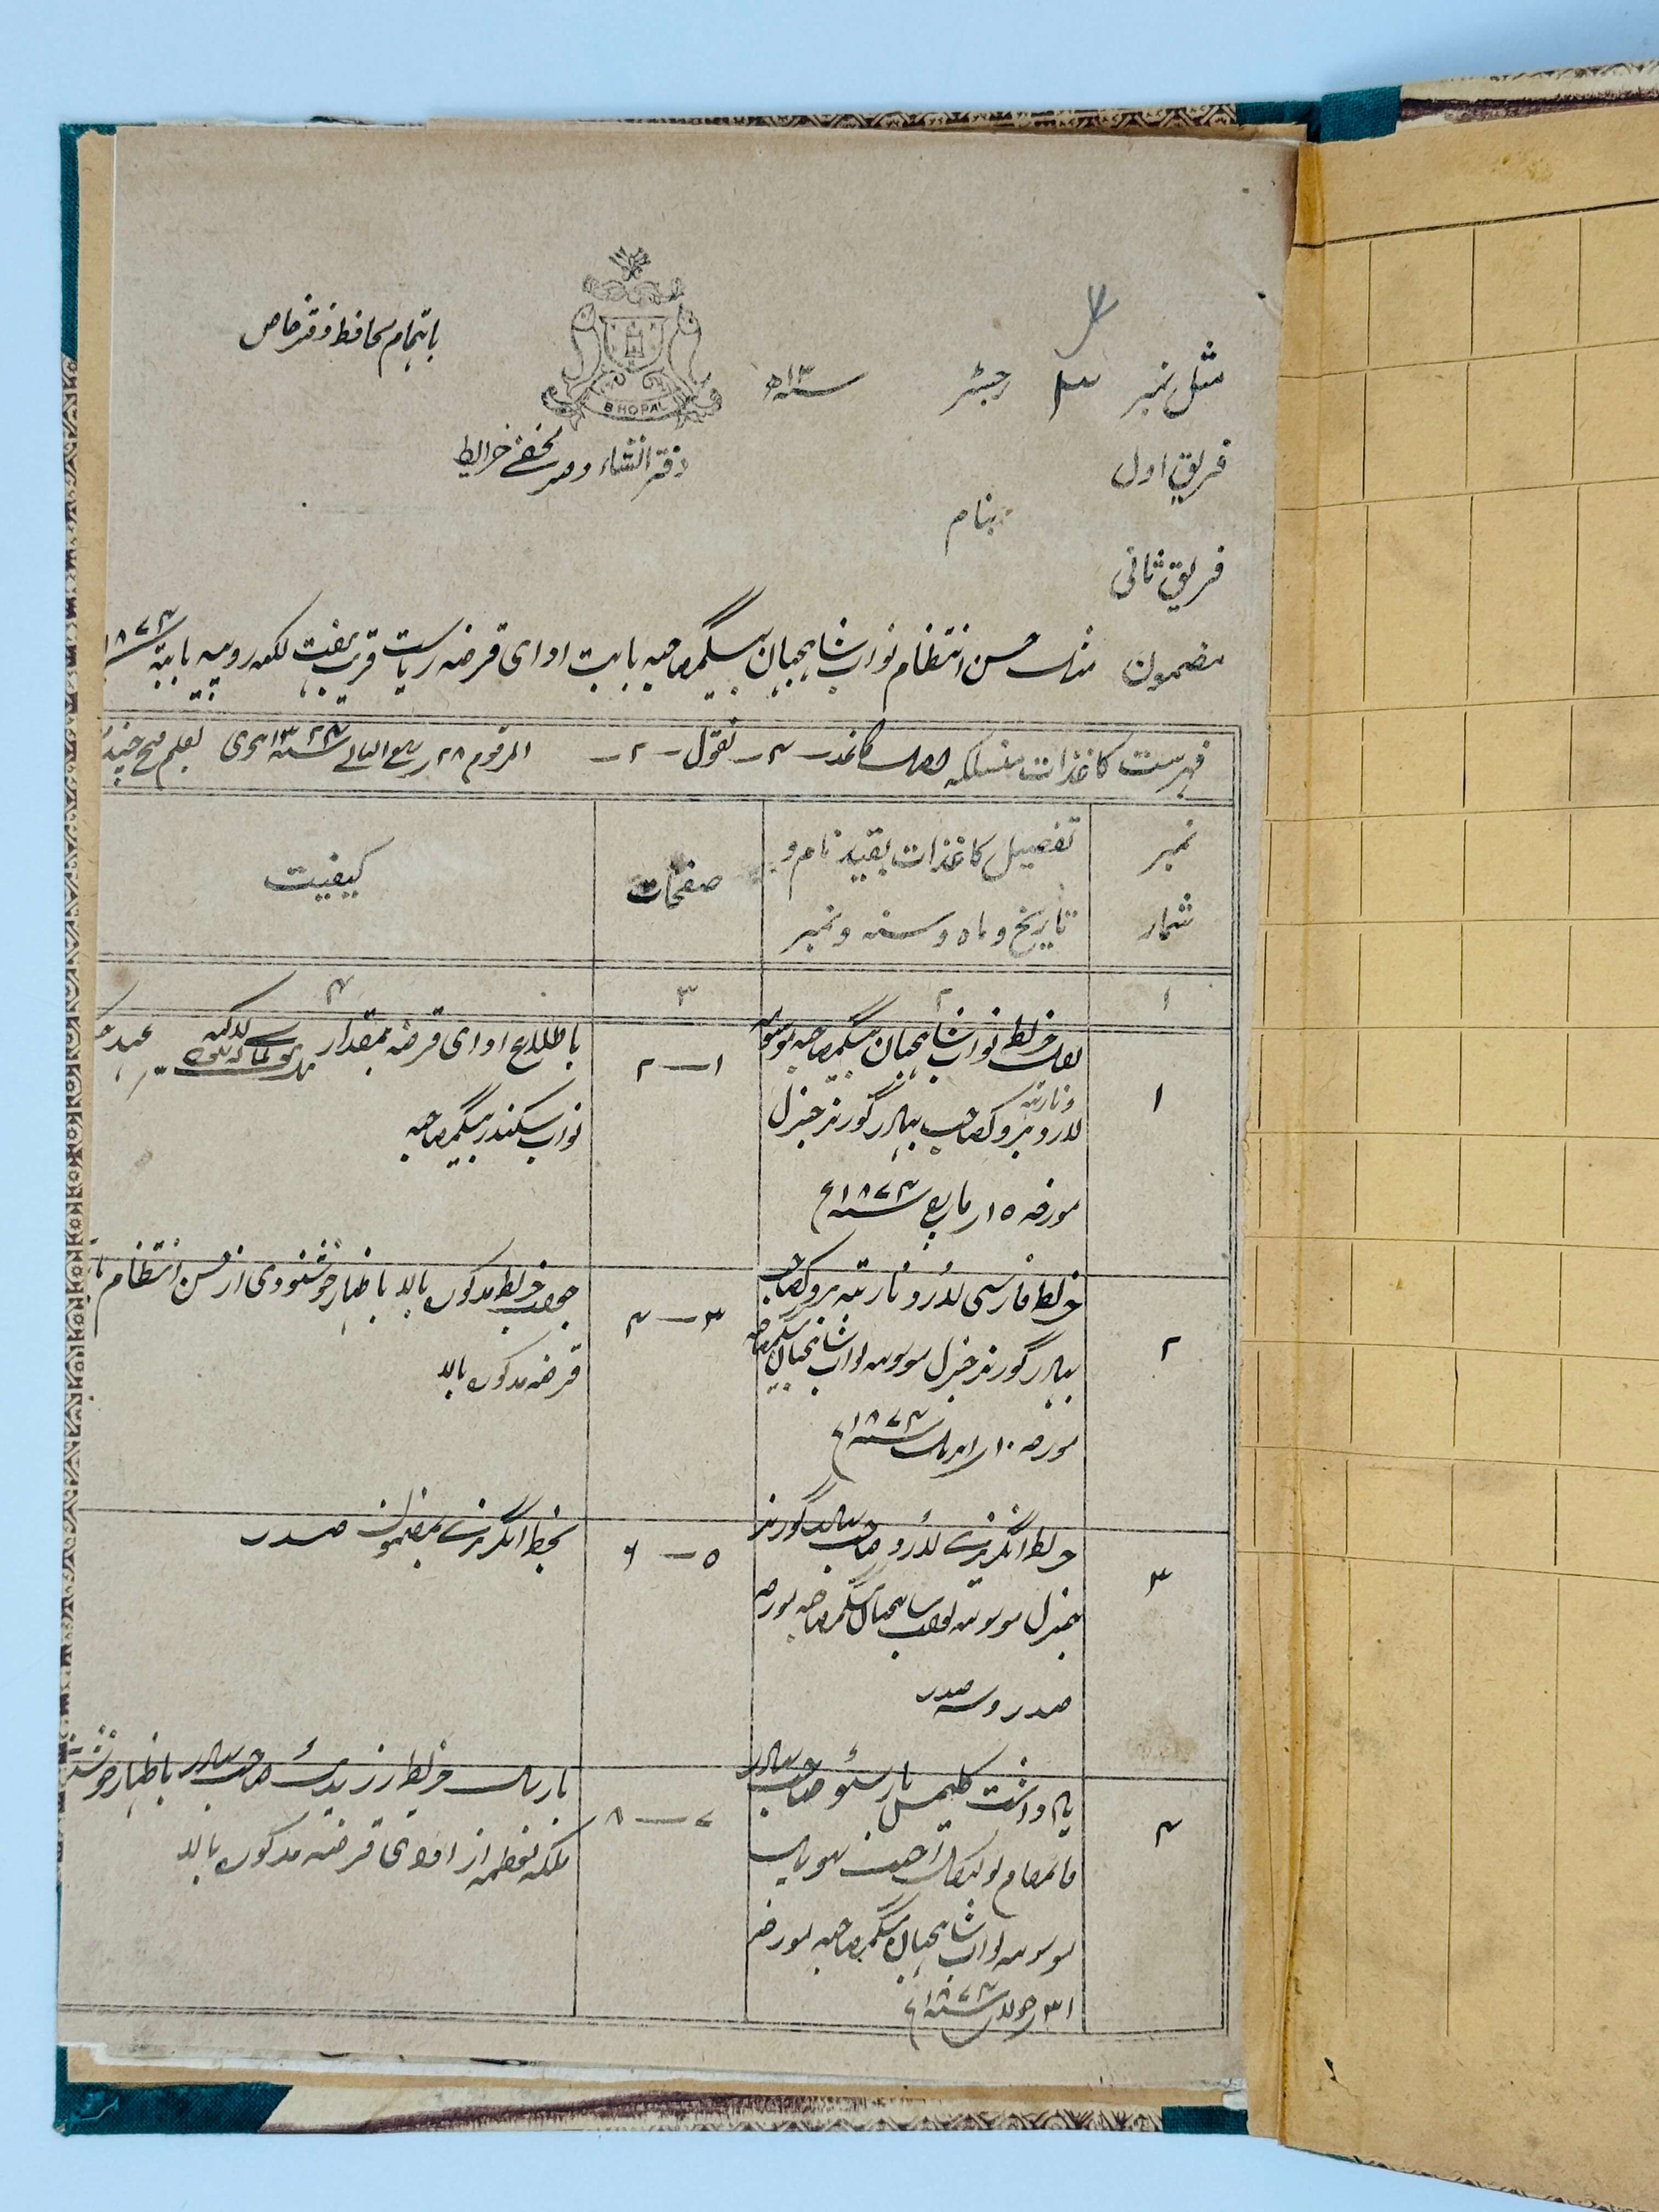 باہتمام محافظ دفتر خاص
BHOPAL
مثل نمبر ۳ رجسٹر سنہ ۱۳ھ
دفتر انشاء و مدبخشے خرایط
فریق اول
بنام
فریق ثانی
مضمون مثل حسن انتظام نواب شاہجہان بیگم صاحبہ بابت ادای قرضہ ریاست قریب ہفت لکھہ روپیہ بابتہ سنہ ۱۸۷۴
فہرست کاغذات منسلکہ کاغذ -۴- نقول -۲- المرقوم ۲۸ ربیع الثانی سنہ ۱۳۲۴ ہجری بقلم
نمبر شمار
تفصیل کاغذات بقید نام و
تاریخ و ماہ و سنہ و نمبر
صفحات
کیفیت
۱ ۲ ۳ ۴
۱
نقل خریطہ نواب شاہجہان بیگم صاحبہ موسومہ
لارڈ نارتہہ بروک صاحب بہادر گورنر جنرل
مورخہ ۱۵ر مارچ سنہ ۱۸۷۴ع
۱ — ۲
باطلاع ادای قرضہ بمقدار عہد
نواب سکندر بیگم صاحبہ
۲
خریطہ فارسی لارڈ نارتہہ بروک صاحب
بہادر گورنر جنرل موسومہ نواب شاہجہان بیگم صاحبہ
مورخہ ۱۰ر اپریل سنہ ۱۸۷۴ع
۳ — ۴
جواب خریطہ مذکورہ بالا باظہار خوشنودی از حسن انتظام
قرضہ مذکورہ بالا
۳
خریطہ انگریزی لارڈ صاحب بہادر گورنر
جنرل موسومہ نواب شاہجہان بیگم صاحبہ مورخہ
صدر و سنہ صدر
۵ — ۶
بخط انگریزی بمضمون صدر
۴
یادداشت صاحب بہادر
قائمقام پولیٹکل ایجنٹ بھوپال
موسومہ نواب شاہجہان بیگم صاحبہ مورخہ
۳۱ر جولائی سنہ ۱۸۷۴ع
۷ — ۸
بارسال خریطہ رزیڈنٹ صاحب بہادر باظہار
ملکہ معظمہ از ادای قرضہ مذکورہ بالا